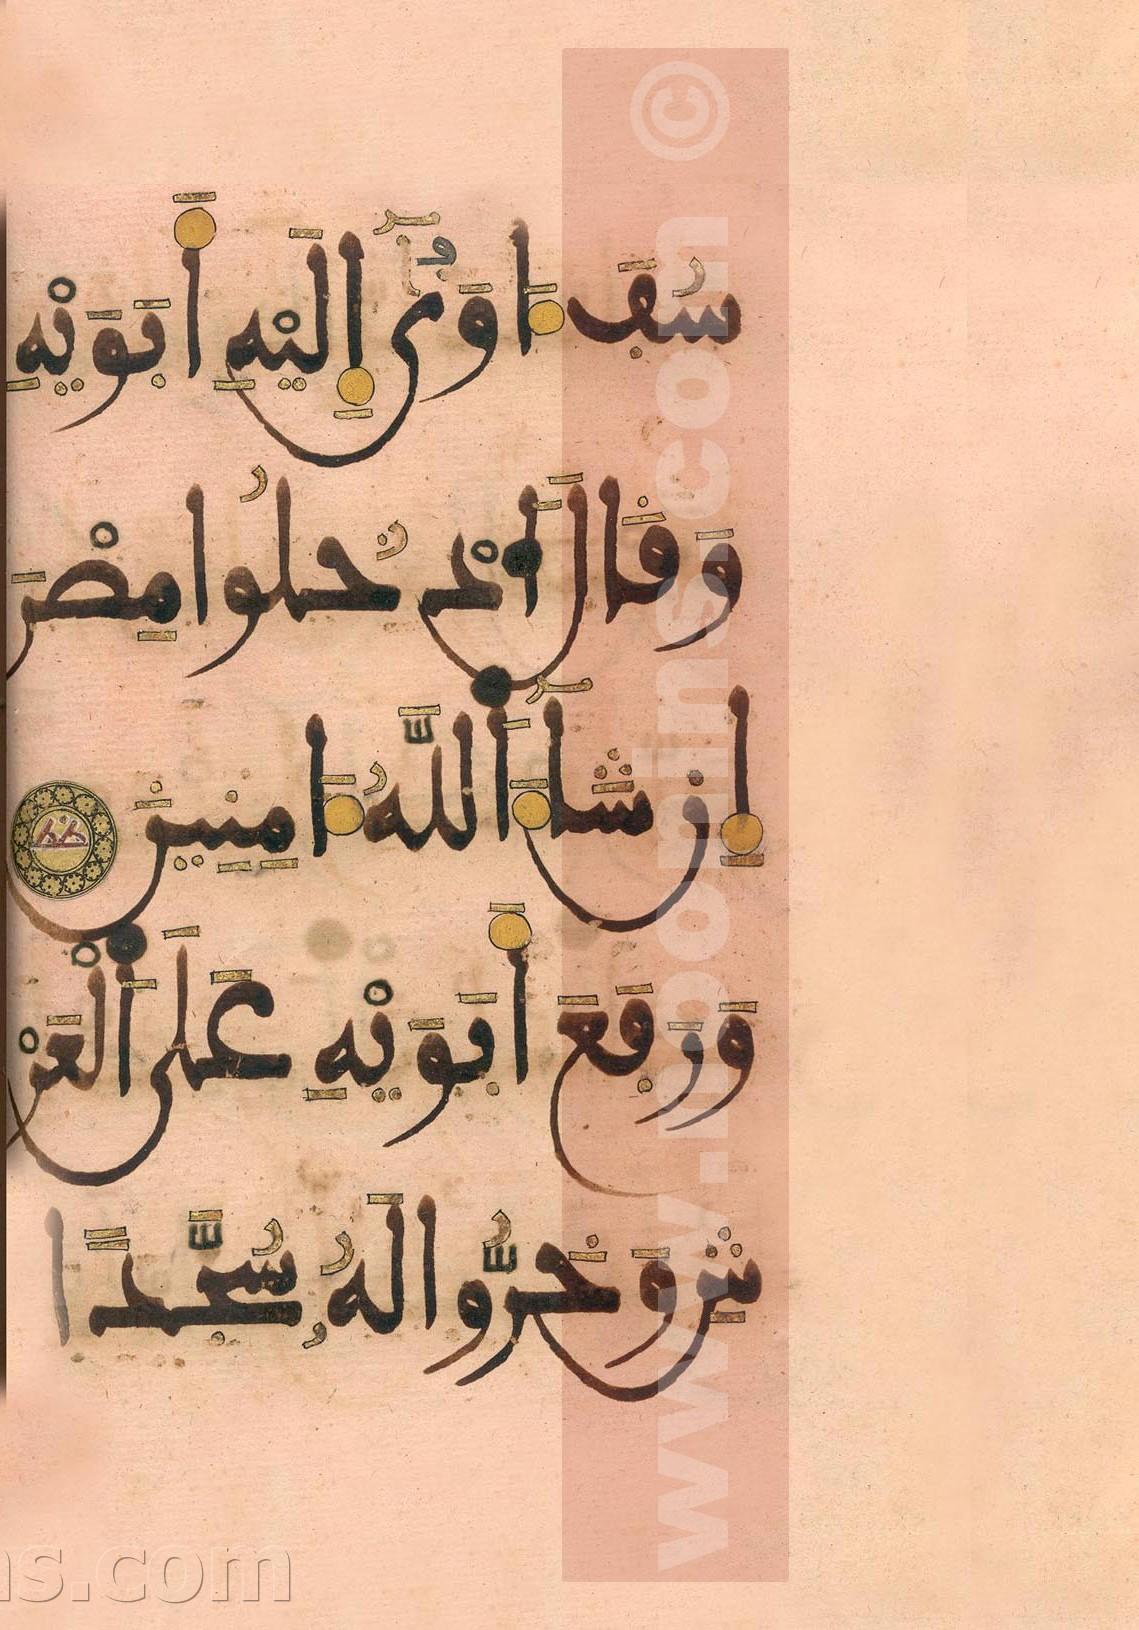 سُفَ ءَاوَىٰٓ إِلَيْهِ أَبَوَيْهِ
وَقَالَ ادْخُلُوا مِصْرَ
إِن شَآءَ اَللَّهُ ءَامِنِينَ
وَرَفَعَ أَبَوَيْهِ عَلَى اَلْعَرْ
شِ وَخَرُّوا لَهُۥ سُجَّدًا
www.bopnins.com ©
ns.com